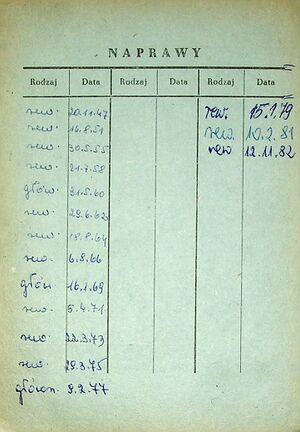 NAPRAWY
Rodzaj Data Rodzaj Data Rodzaj Data
rew. 20.11.47
rew. 16.8.51
rew. 30.5.55
rew. 21.7.58
głów. 31.5.60
rew. 29.6.62
rew. 18.8.64
rew. 6.8.66
głów 16.1.69
rew. 5.4.71
rew. 22.3.73
rew. 29.3.75
główn. 9.2.77
rew. 15.1.79
rew. 10.2.81
rew 12.11.82